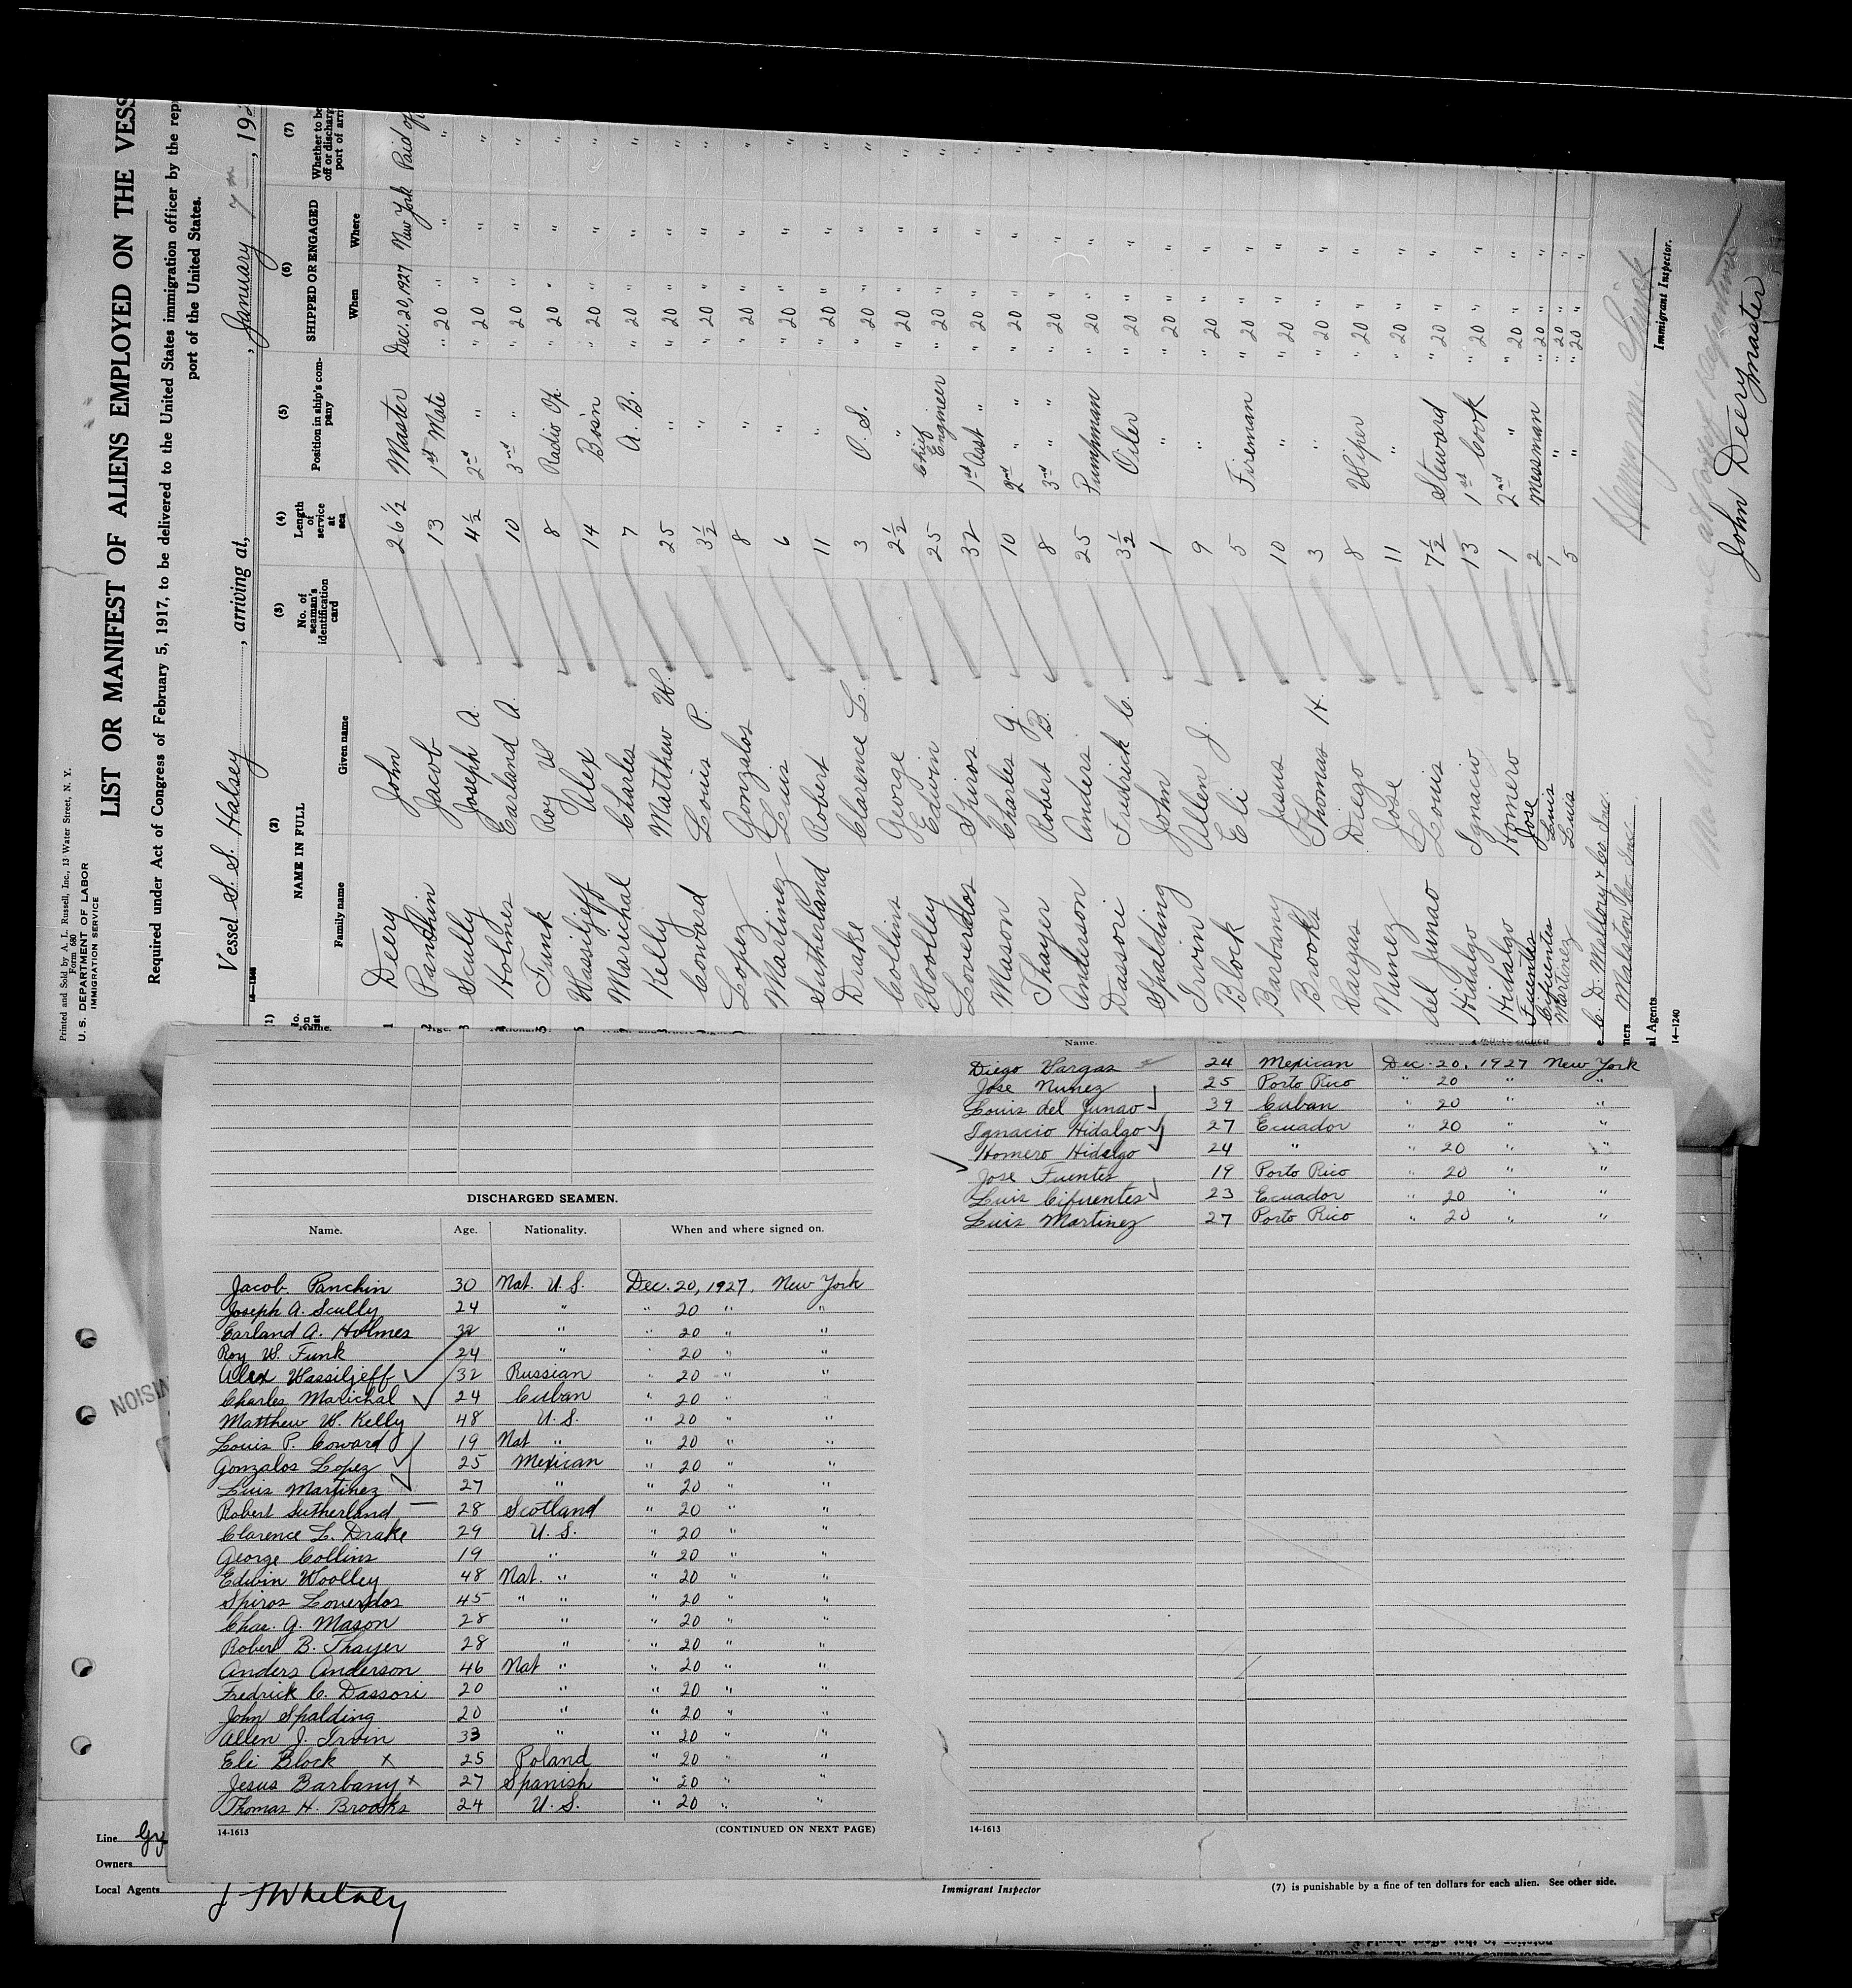 Printed and Sold by A. L. Russell, Inc., 13 Water Street, N. Y.
Form 680
U. S. DEPARTMENT OF LABOR
IMMIGRATION SERVICE
LIST OR MANIFEST OF ALIENS EMPLOYED ON THE VESS
Required under Act of Congress of February 5, 1917, to be delivered to the United States immigration officer by the rep
port of the United States.
Vessel S. S. Halsey, arriving at, January 7th, 192
(1) (2) (3) (4) (5) (6) (7)
NAME IN FULL No. of seaman's identification card Length of service at sea Position in ship's company SHIPPED OR ENGAGED Whether to be off or discharg port of arri
Family name Given name When Where
1 Deery John 26½ Master Dec. 20, 1927 New York Paid of
2 Panchin Jacob 13 1st Mate " 20 " " "
3 Scully Joseph A. 4½ 2nd " " 20 " " "
4 Holmes Earland A. 10 3rd " " 20 " " "
5 Funk Roy W 8 Radio Op. " 20 " " "
Wassiljeff Alex 14 Bos'n " 20 " " "
Marichal Charles 7 A. B. " 20 " " "
Kelly Matthew W. 25 " " 20 " " "
Coward Louis P. 3½ " " 20 " " "
Lopez Gonzalos 8 " " 20 " " "
Martinez Luis 6 " " 20 " " "
Sutherland Robert 11 " " 20 " " "
Drake Clarence L. 3 O. S. " 20 " " "
Collins George 2½ " " 20 " " "
Woolley Edwin 25 Chief Engineer " 20 " " "
Loverdos Spiros 32 1st Asst " " 20 " " "
Mason Charles G. 10 2nd " " " 20 " " "
Thayer Robert B. 8 3rd " " " 20 " " "
Anderson Anders 25 Pumpman " 20 " "
Dassori Fredrick C. 3½ Oiler " 20 " "
Spalding John 1 " " 20 " "
Irvin Allen J. 9 " " 20 " "
Block Eli 5 Fireman " 20 " "
Barbany Jesus 10 " " 20 " "
Brooks Thomas H. 3 " " 20 " "
Vargas Diego 8 Wiper " 20 " "
Nunez Jose 11 " " 20 " "
del Junao Louis 7½ Steward " 20 " "
Hidalgo Ignacio 13 1st Cook " 20 " "
Hidalgo Homero 1 2nd " " 20 " "
Fuentes Jose 2 Mesman " 20 " "
Cifuentes Luis 1 " " 20 " "
Martinez Luis 5 " " 20 " "
C. D. Mallory & Co Inc.
ners Malston Co. Inc.
al Agents
14-1240
Immigrant Inspector.
John Deery
master
Name.
Diego Vargas 24 Mexican Dec. 20, 1927 New York
Jose Nunez 25 Porto Rico " 20 " "
Louis del Junao 39 Cuban " 20 " "
Ignacio Hidalgo 27 Ecuador " 20 " "
Homero Hidalgo 24 " " 20 " "
Jose Fuentes 19 Porto Rico " 20 " "
Luis Cifuentes 23 Ecuador " 20 " "
Luis Martinez 27 Porto Rico " 20 " "
DISCHARGED SEAMEN.
Name. Age. Nationality. When and where signed on.
Jacob Panchin 30 Nat. U. S. Dec. 20, 1927. New York
Joseph A. Scully 24 " " 20 " "
Earland A. Holmes 32 " " 20 " "
Roy W. Funk 24 " " 20 " "
Alex Wassiljeff 32 Russian " 20 " "
Charles Marichal 24 Cuban " 20 " "
Matthew W. Kelly 48 U. S. " 20 " "
Louis P. Coward 19 Nat " " 20 " "
Gonzalos Lopez 25 Mexican " 20 " "
Luis Martinez 27 " " 20 " "
Robert Sutherland 28 Scotland " 20 " "
Clarence L. Drake 29 U. S. " 20 " "
George Collins 19 " " 20 " "
Edwin Woolley 48 Nat. " " 20 " "
Spiros Loverdos 45 " " " 20 " "
Chas. G. Mason 28 " " 20 " "
Robert B. Thayer 28 " " 20 " "
Anders Anderson 46 Nat " " 20 " "
Fredrick C. Dassori 20 " " 20 " "
John Spalding 20 " " 20 " "
Allen J. Irvin 33 " " 20 " "
Eli Block x 25 Poland " 20 " "
Jesus Barbany x 27 Spanish " 20 " "
Thomas H. Brooks 24 U. S. " 20 " "
14-1613 (CONTINUED ON NEXT PAGE)
14-1613
Line
Owners
Local Agents
J F Whitney
Immigrant Inspector
(7) is punishable by a fine of ten dollars for each alien. See other side.